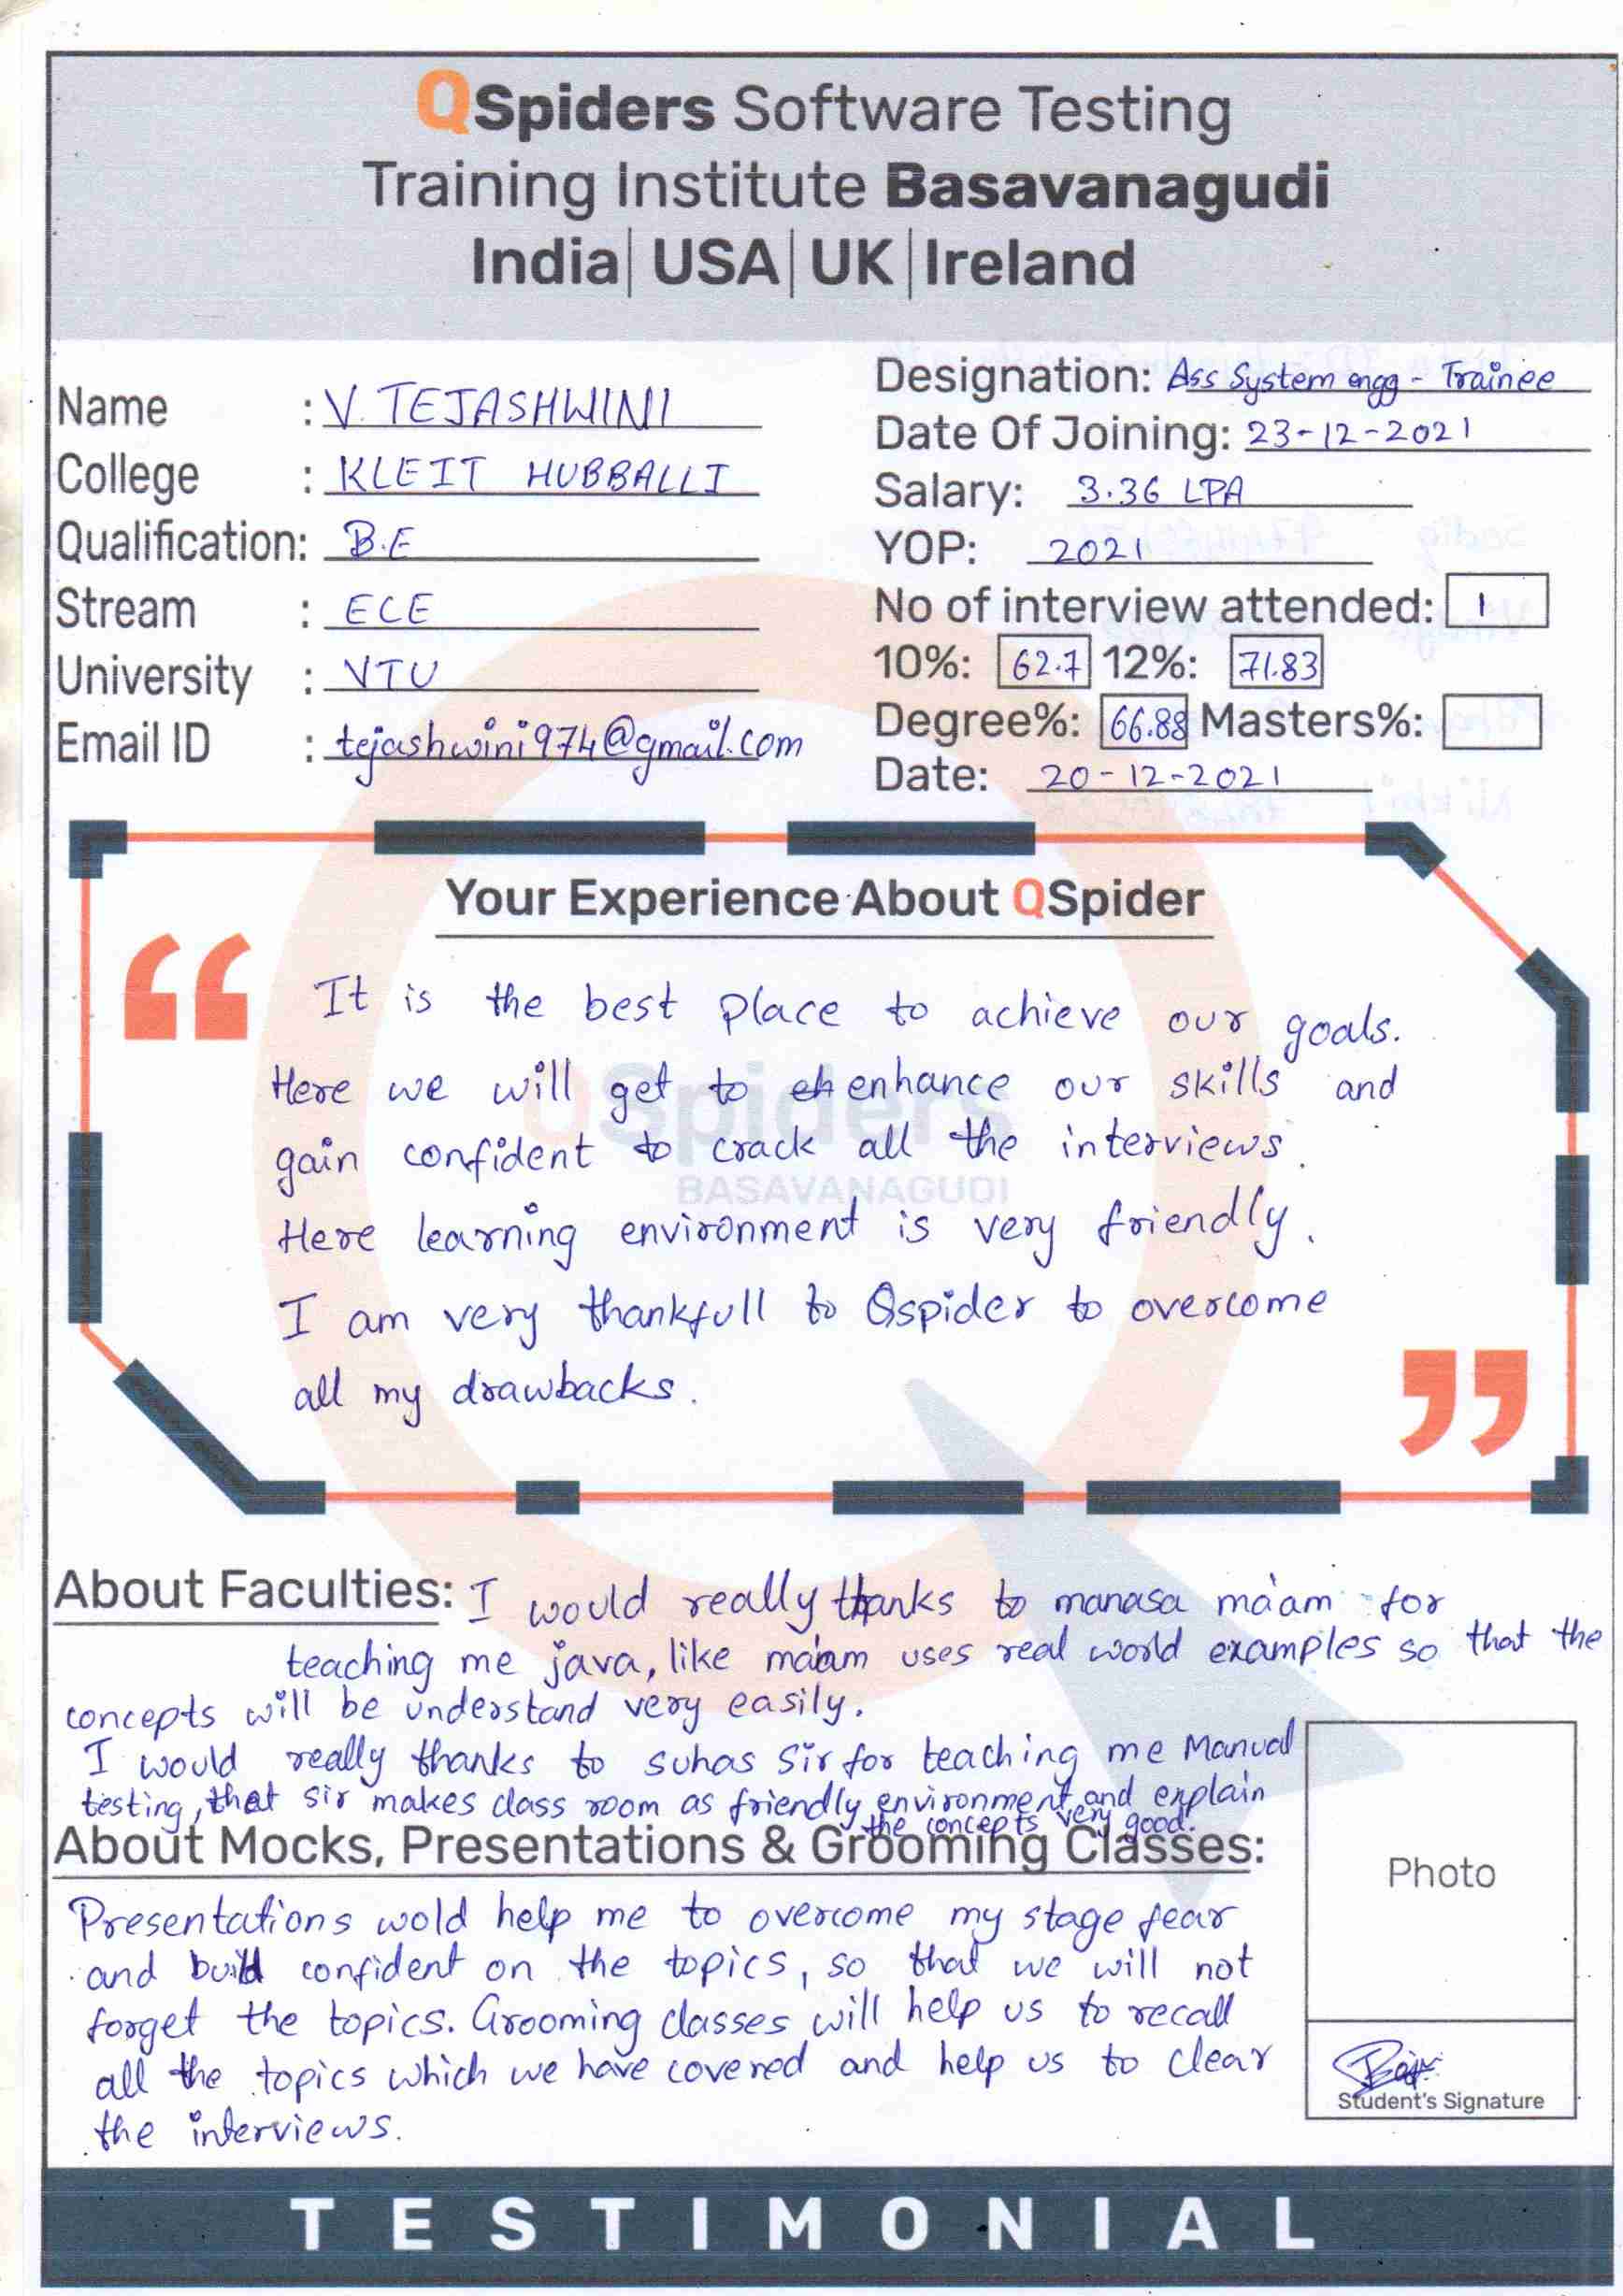 QSpiders Software Testing
Training Institute Basavanagudi
India| USA| UK |Ireland
Name : V. TEJASHWINI
College : KLEIT HUBBALLI
Qualification: B.E
Stream : ECE
University : VTU
Email ID : tejashwini974@gmail.com
Designation: Ass System engg - Trainee
Date Of Joining: 23-12-2021
Salary: 3.36 LPA
YOP: 2021
No of interview attended: 1
10%: 62.7 12%: 71.83
Degree%: 66.88 Masters%:
Date: 20-12-2021
Your Experience About QSpider
“
It is the best place to achieve our goals.
Here we will get to enhance our skills and
gain confident to crack all the interviews.
Here learning environment is very friendly.
I am very thankfull to Qspider to overcome
all my drawbacks.
”
QSpiders
BASAVANAGUDI
About Faculties: I would really thanks to manasa ma'am for
teaching me java, like ma'am uses real world examples so that the
concepts will be understand very easily.
I would really thanks to suhas Sir for teaching me Manual
testing, that sir makes class room as friendly environment and explain
the concepts very good.
About Mocks, Presentations & Grooming Classes:
Presentations wold help me to overcome my stage fear
and build confident on the topics, so that we will not
forget the topics. Grooming classes will help us to recall
all the topics which we have covered and help us to clear
the interviews.
Photo
Student's Signature
TESTIMONIAL